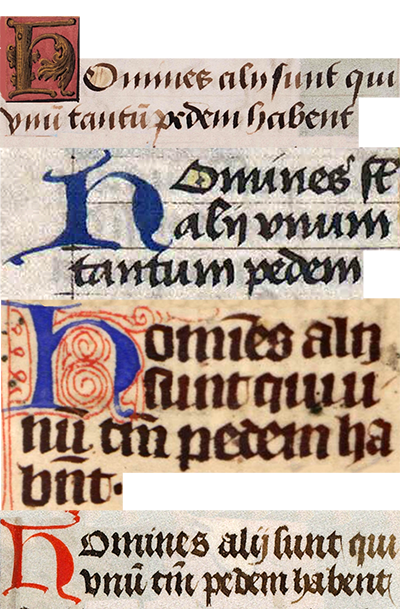 HOmines alij ſunt qui
vnū tantū pedem habent
HOmines ſt̄
alij vnum
tantum pedem
Homīes alij
ſunt qui u
nū tm̄ pedem ha
bn̄t.
Homines alij ſunt qui
vnū tm̄ pedem habent